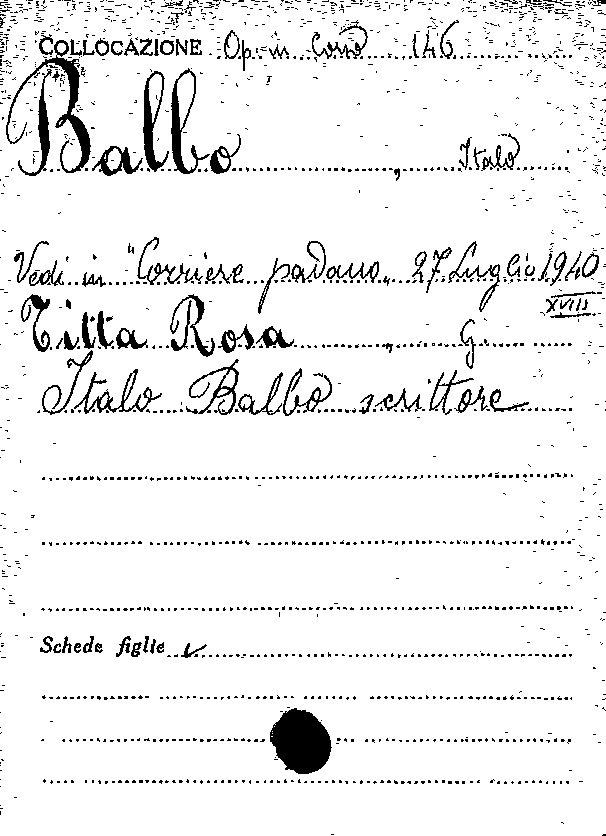 COLLOCAZIONE Op. in Cons 146
Balbo , Italo
Vedi in "Corriere padano„ 27 Luglio 1940
XVIII
Titta Rosa , G.
Italo Balbo scrittore
Schede figlie ✓